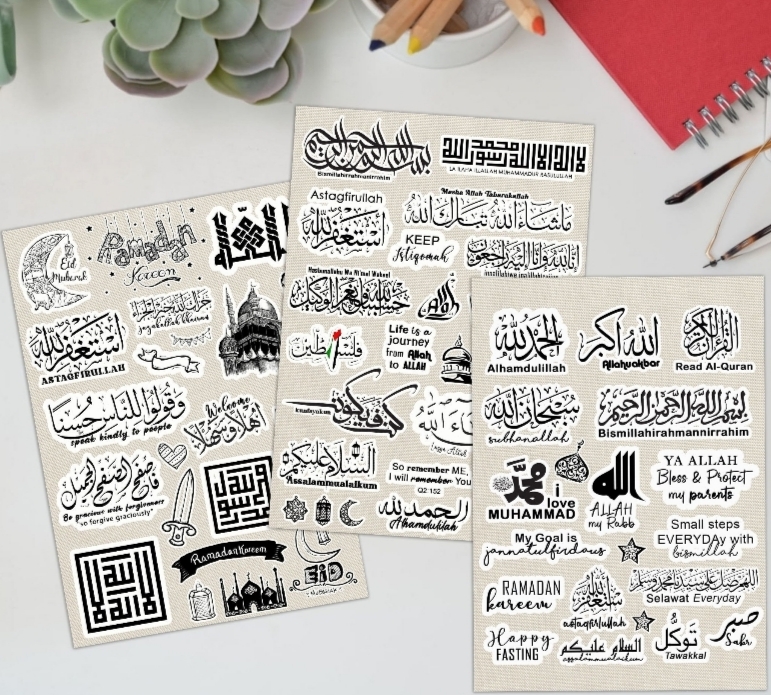 Eid
Mubarak
Ramadan
Kareem
أستغفر الله
ASTAGFIRULLAH
وقولوا للناس حسنا
speak kindly to people
Welcome
أهلا وسهلا
فاصفح الصفح الجميل
Be gracious with forgiveness
"so forgive graciously"
Ramadan Kareem
EID
MUBARAK
بسم الله الرحمن الرحيم
Bismillahirrahmanirrahim
لا اله الا الله محمد رسول الله
LA ILAHA ILLALLAH MUHAMMADUR RASULULLAH
Astagfirullah
أستغفر الله
Masha Allah Tabarakallah
ماشاء الله تبارك الله
KEEP
Istiqomah
إنا لله وإنا إليه راجعون
Hasbunallahu Wa Ni'mal Wakeel
حسبنا الله ونعم الوكيل
فلسطين
Life is a
journey
from Allah
to ALLAH
كن فيكون
kunfayakun
السلام عليكم
Assalammualaikum
So remember ME,
I will remember You
Q2:152
الحمد لله
Alhamdulillah
الحمد لله
Alhamdulillah
الله أكبر
Allahuakbar
القرآن الكريم
Read Al-Quran
سبحان الله
subhanallah
بسم الله الرحمن الرحيم
Bismillahirahmannirrahim
محمد
i
love
MUHAMMAD
الله
ALLAH
my Rabb
YA ALLAH
Bless & Protect
my parents
My Goal is
jannatulfirdous
Small steps
EVERYDAy with
bismillah
RAMADAN
kareem
أستغفر الله
astagfirullah
اللهم صل على سيدنا محمد وسلم
Selawat Everyday
Happy
FASTING
السلام عليكم
assalammualaikum
توكل
Tawakkal
صبر
Sabr